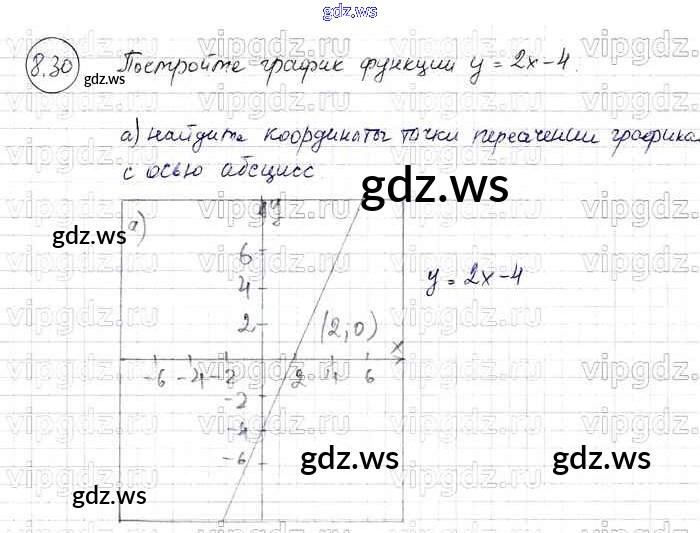 gdz.ws
8.30 Постройте график функции y = 2x-4.
gdz.ws
а) найдите координаты точки пересечении графика
с осью абсцисс.
gdz.ws
а) y
gdz.ws
6
y = 2x-4
4
2 (2,0)
x
-6 -4 -2 2 4 6
-2
-4
-6
gdz.ws gdz.ws
gdz.ws
vipgdz.ru